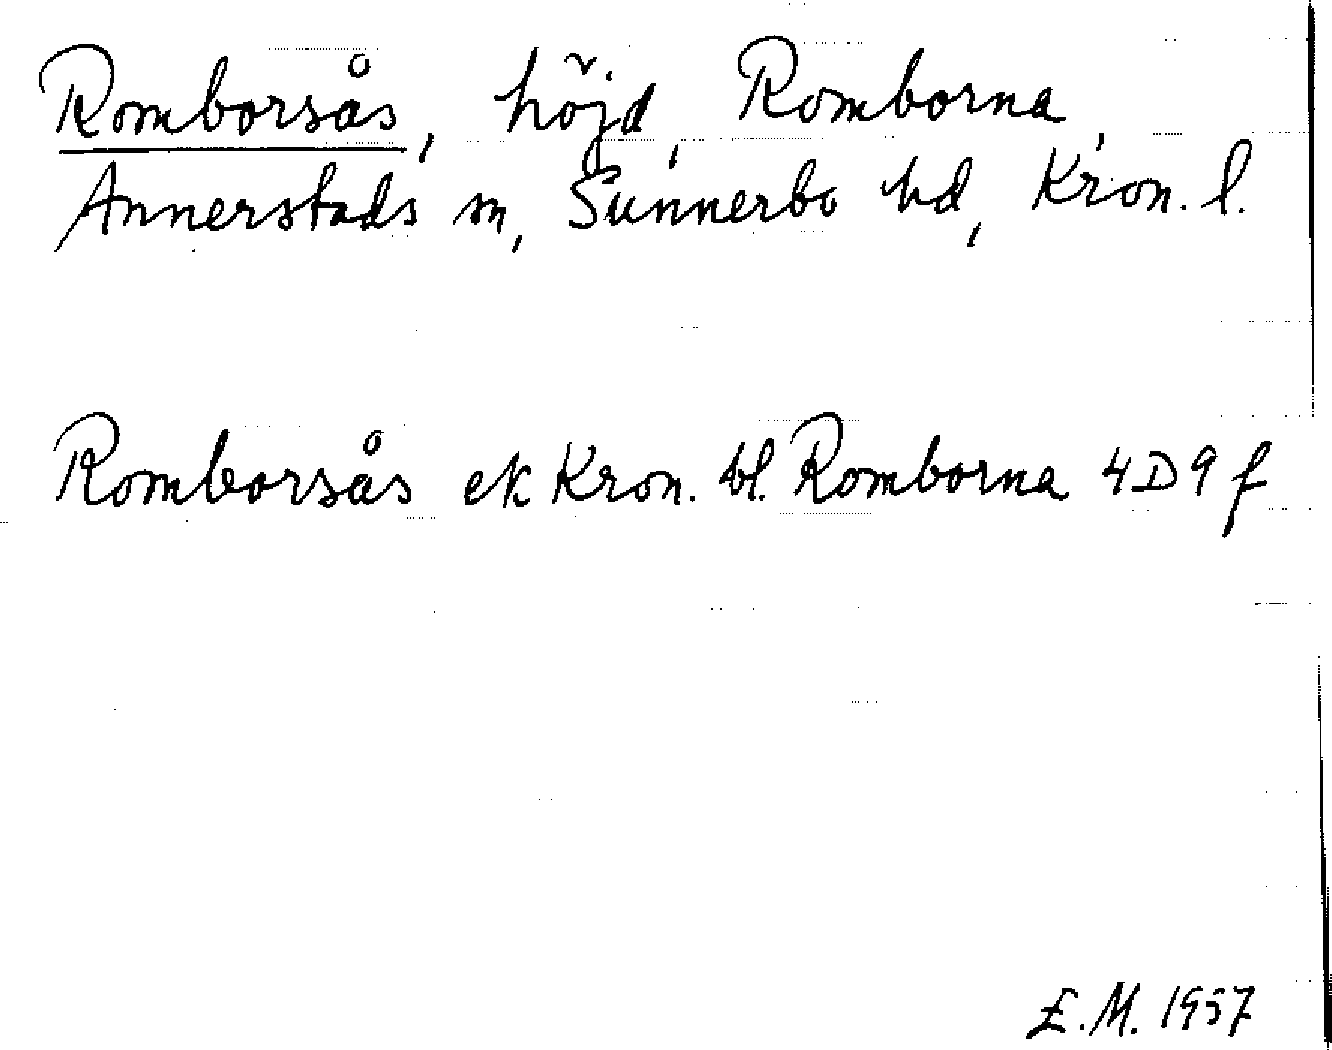 Romborsås, höjd, Romborna,
Annerstads sn, Sunnerbo hd, Kron. l.
Romborsås ek Kron. bl. Romborna 4D9f
E.M. 1957